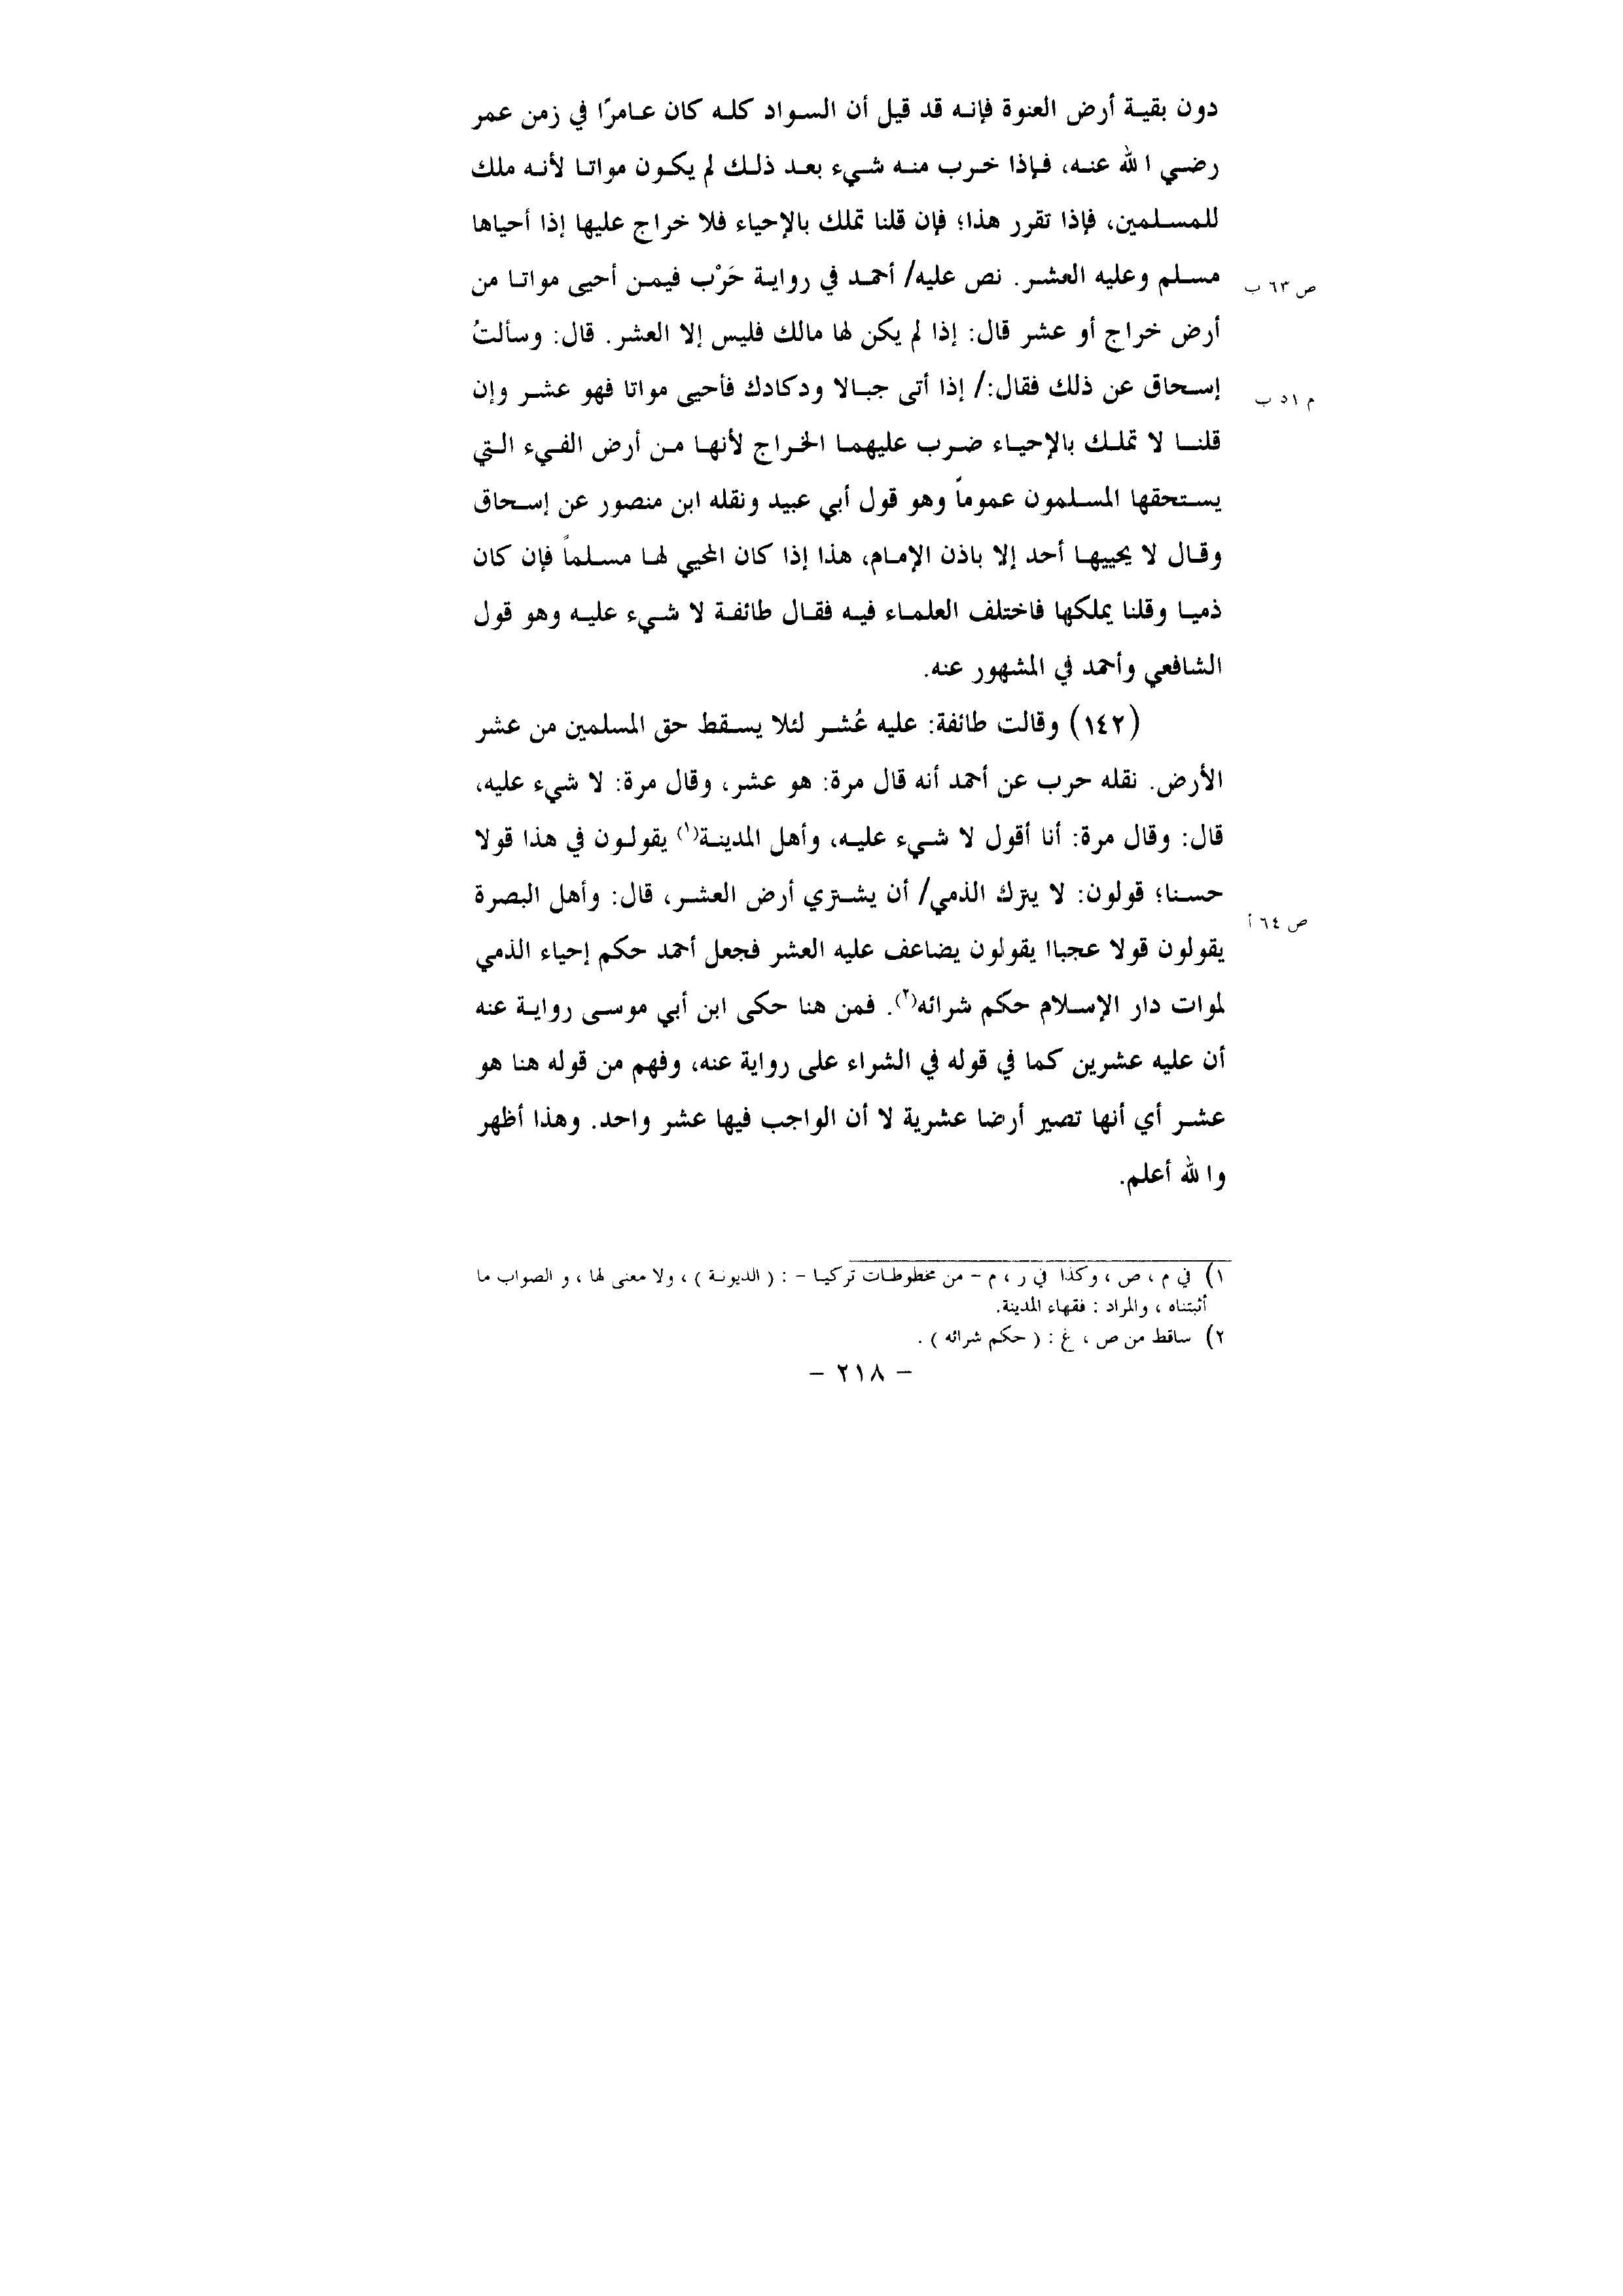 دون بقية أرض العنوة فإنه قد قيل أن السواد كله كان عامرًا في زمن عمر
رضي الله عنه، فإذا خرب منه شيء بعد ذلك لم يكون مواتا لأنه ملك
للمسلمين، فإذا تقرر هذا؛ فإن قلنا تملك بالإحياء فلا خراج عليها إذا أحياها
مسلم وعليه العشر. نص عليه/ أحمد في رواية حَرْب فيمن أحيى مواتا من
ص ٦٣ ب
أرض خراج أو عشر قال: إذا لم يكن لها مالك فليس إلا العشر. قال: وسألتُ
إسحاق عن ذلك فقال:/ إذا أتى جبالا ودكادك فأحيى مواتا فهو عشر وإن
م ٥١ ب
قلنا لا تملك بالإحياء ضرب عليهما الخراج لأنها من أرض الفيء التي
يستحقها المسلمون عموماً وهو قول أبي عبيد ونقله ابن منصور عن إسحاق
وقال لا يحييها أحد إلا باذن الإمام، هذا إذا كان المحيي لها مسلماً فإن كان
ذميا وقلنا يملكها فاختلف العلماء فيه فقال طائفة لا شيء عليه وهو قول
الشافعي وأحمد في المشهور عنه.
(١٤٢) وقالت طائفة: عليه عُشر لئلا يسقط حق المسلمين من عشر
الأرض. نقله حرب عن أحمد أنه قال مرة: هو عشر، وقال مرة: لا شيء عليه،
قال: وقال مرة: أنا أقول لا شيء عليه، وأهل المدينة(١) يقولون في هذا قولا
حسنا؛ قولون: لا يترك الذمي/ أن يشتري أرض العشر، قال: وأهل البصرة
ص ٦٤ أ
يقولون قولا عجباا يقولون يضاعف عليه العشر فجعل أحمد حكم إحياء الذمي
لموات دار الإسلام حكم شرائه(٢). فمن هنا حكى ابن أبي موسى رواية عنه
أن عليه عشرين كما في قوله في الشراء على رواية عنه، وفهم من قوله هنا هو
عشر أي أنها تصير أرضا عشرية لا أن الواجب فيها عشر واحد. وهذا أظهر
والله أعلم.
١) في م ، ص ، وكذا في ر ، م - من مخطوطات تركيا - : ( الديونة ) ، ولا معنى لها ، و الصواب ما
أثبتناه ، والمراد : فقهاء المدينة.
٢) ساقط من ص ، غ : ( حكم شرائه ) .
- ٢١٨ -